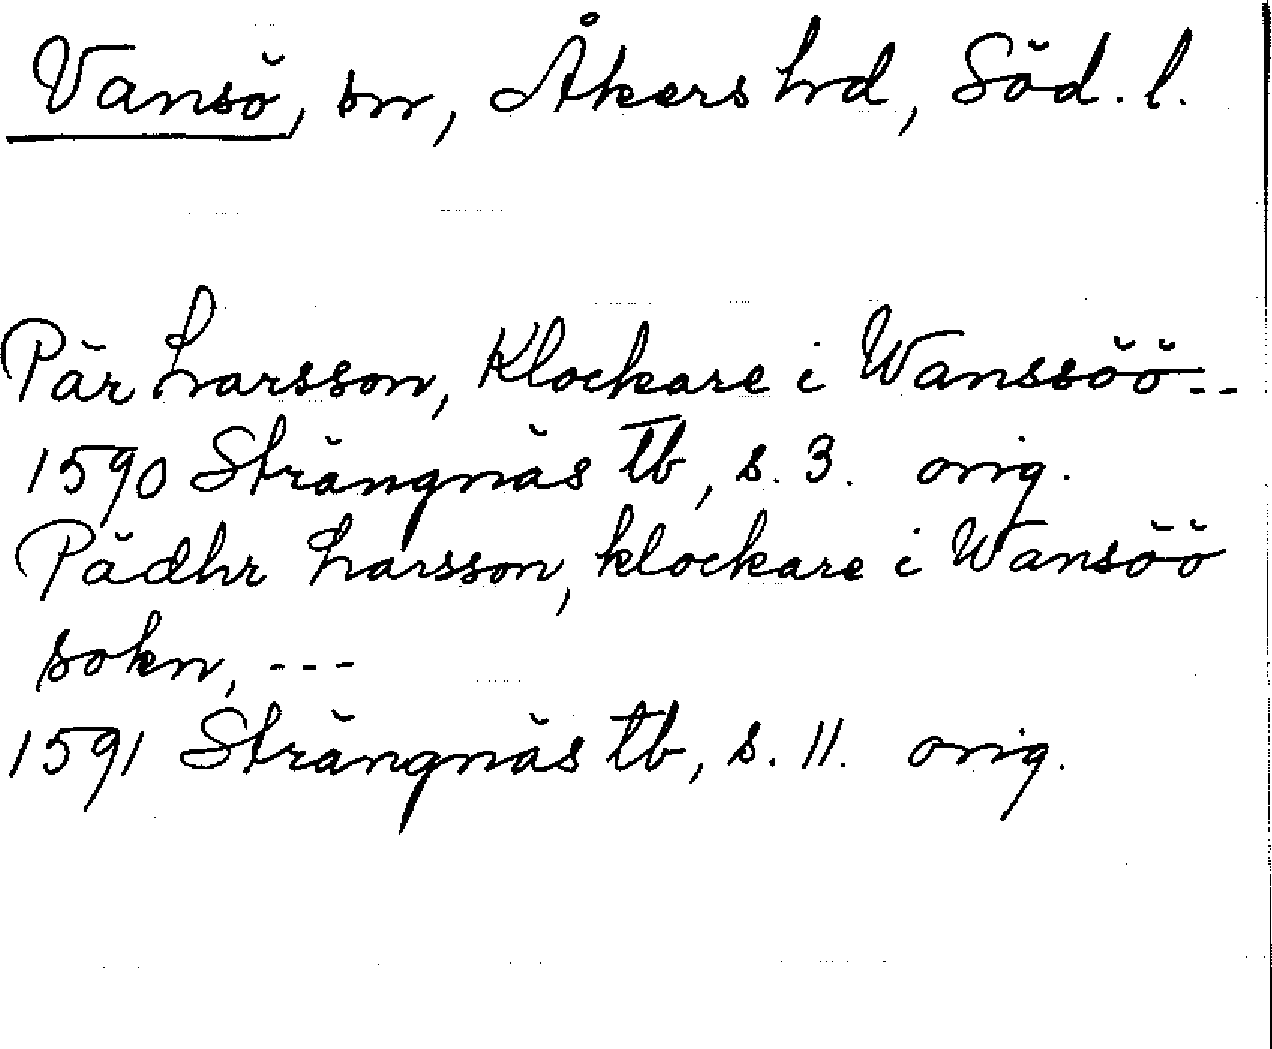 Vansö, sn, Åkers hd, Söd. l.
Pär Larsson, Klockare i Wanssöö--
1590 Strängnäs Tb, s. 3. orig.
Pädhr Larsson, klockare i Wansöö
sokn, ---
1591 Strängnäs Tb, s. 11. orig.